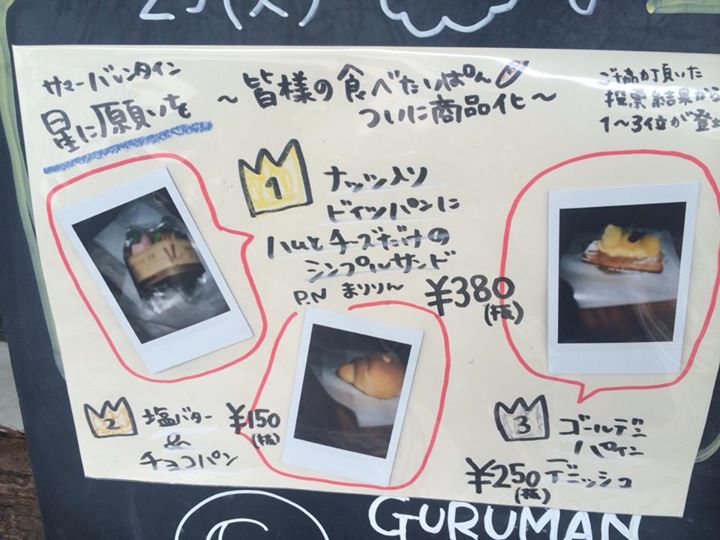 (火)
サマーバレンタイン
星に願いを
~皆様の食べたいぱん
ついに商品化~
ご協力頂いた
投票結果から
1~3位が登
1
ナッツ入り
ドイツパンに
ハムとチーズだけの
シンプルサンド
P.N まりりん
¥380
(税)
2
塩バター
&
チョコパン
¥150
(税)
3
ゴールデン
パイン
デニッシュ
¥250
(税)
GURUMAN